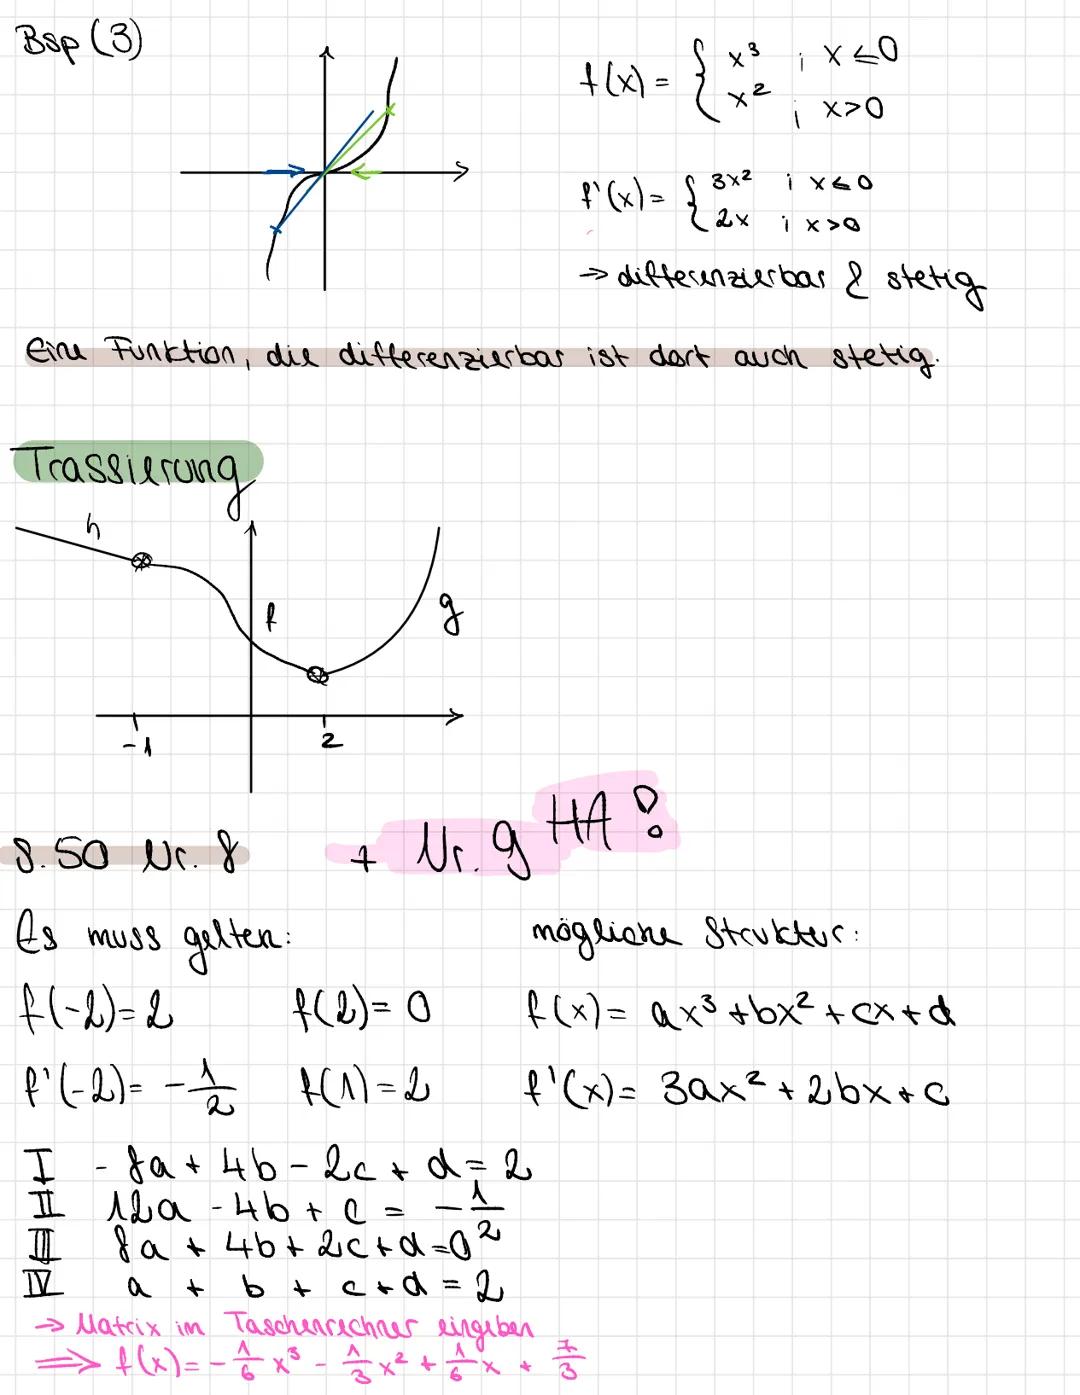 Bsp (3)
f(x) = { x³ ; x ≤ 0
x² ; x > 0
f'(x) = { 3x² ; x ≤ 0
2x ; x > 0
→ differenzierbar & stetig
Eine Funktion, die differenzierbar ist dort auch stetig.
Trassierung
h
f
g
-1
2
S. 50 Nr. 8 + Nr. 9 HA!
Es muss gelten: mögliche Struktur:
f(-2) = 2 f(2) = 0 f(x) = ax³ + bx² + cx + d
f'(-2) = -1/2 f(1) = 2 f'(x) = 3ax² + 2bx + c
I -8a + 4b - 2c + d = 2
II 12a - 4b + c = -1/2
III 8a + 4b + 2c + d = 0
IV a + b + c + d = 2
→ Matrix im Taschenrechner eingeben
⟹ f(x) = -1/6 x³ - 1/3 x² + 1/6 x + 7/3